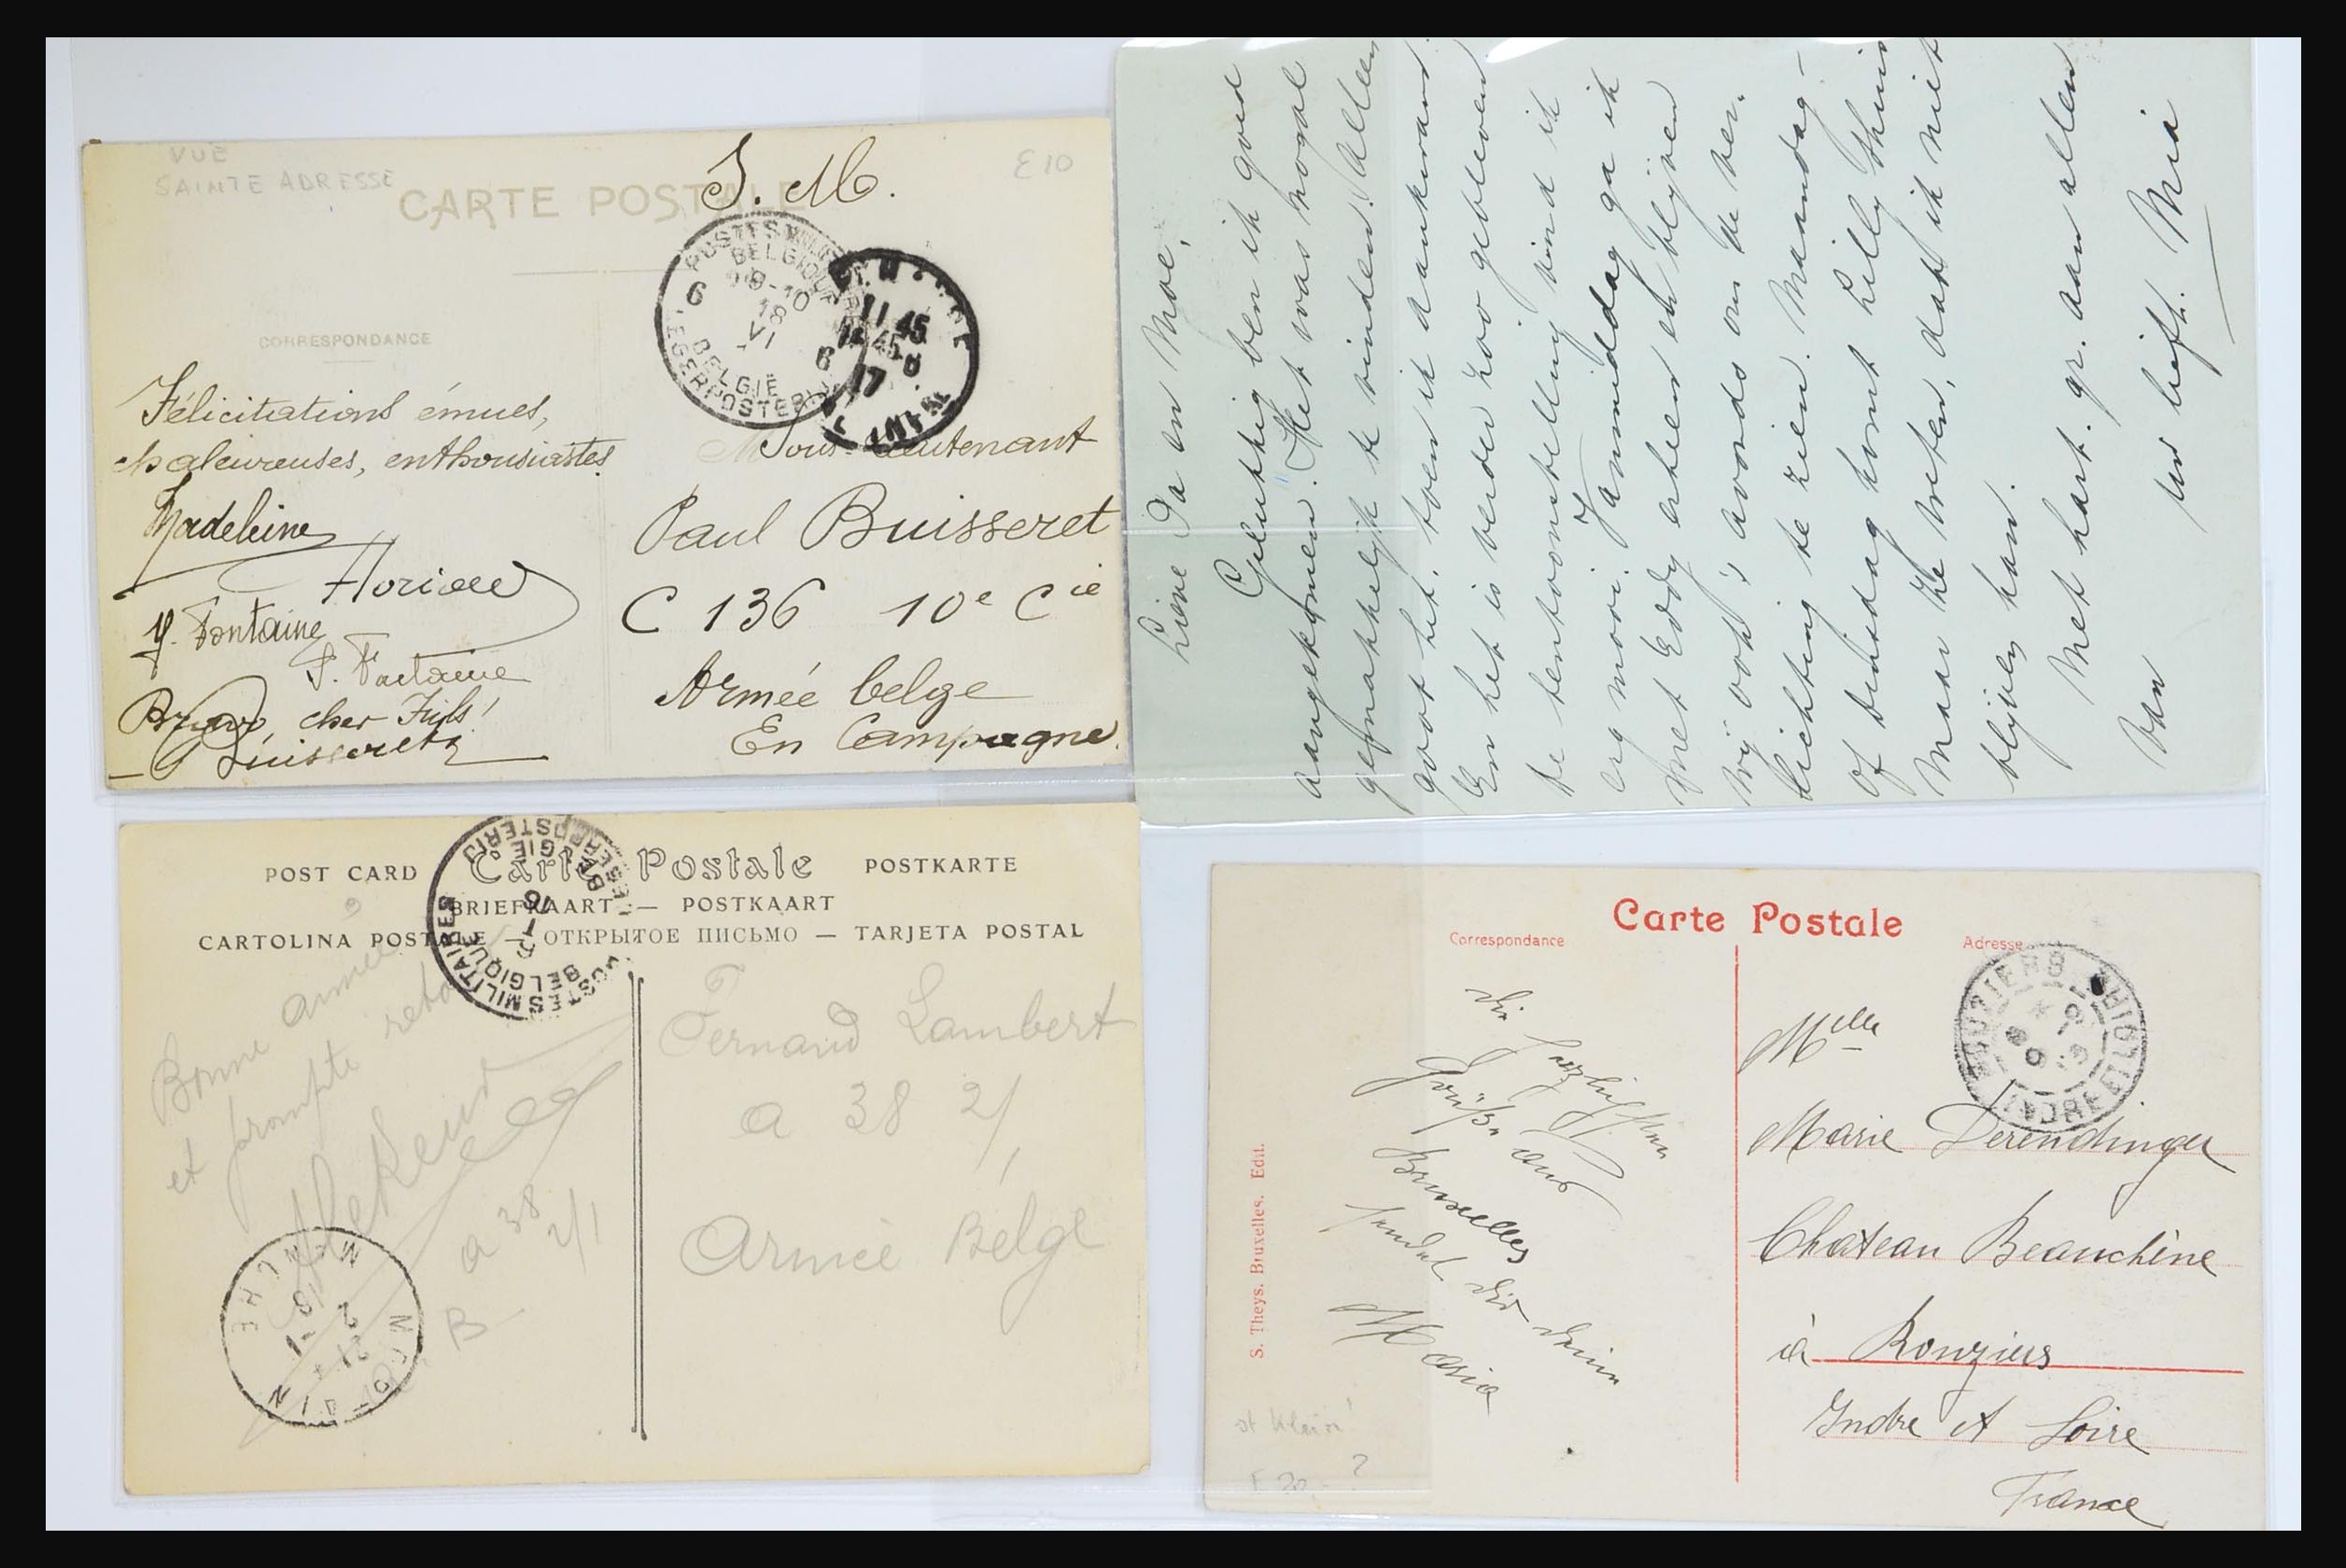 VUE
SAINTE ADRESSE
CARTE POSTALE
S. M.
E10
POSTES MILITAIRES
BELGIQUE
6
18
VI
BELGIË
LEGERPOSTERIJ
11 45
6
17
CORRESPONDANCE
Félicitations émues,
chaleureuses, enthousiastes
Madeleine
Y. Fontaine
Bravo, cher Fils!
Buisseret
Sous-Lieutenant
Paul Buisseret
C 136 10e Cie
Armée belge
En Campagne
Lieve Pa en Moe,
Gelukkig ben ik goed
aangekomen. Het was nogal
gemakkelijk te vinden. Alleen
groot het.
En het is verder zoo gebleven
de tentoonstelling vind ik
erg mooi. Vanmiddag ga ik
met Eddy erheen en blijven
wij ook 's avonds om de ver-
lichting te zien. Maandag-
of dinsdag komt Lilly thuis
Maar ze weten, dat ik niet
blijven kan.
Met hart. gr. aan allen
van
uw liefh. Mia
POST CARD Carte Postale POSTKARTE
BRIEFKAART — POSTKAART
CARTOLINA POSTALE — ОТКРЫТОЕ ПИСЬМО — TARJETA POSTAL
POSTES MILITAIRES
BELGIQUE
Bonne année
et prompte retour
a 38
2/1
Fernand Lambert
a 38 2/1
Armée Belge
Carte Postale
Correspondance
Adresse
INDRE ET LOIRE
Die herzlichsten
Grüße aus
Bruxelles
sendet Dir Deine
Maria
Melle
Marie Derendinger
Chateau Beauchêne
à Rouziers
Indre et Loire
France
S. Theys. Bruxelles. Edit.